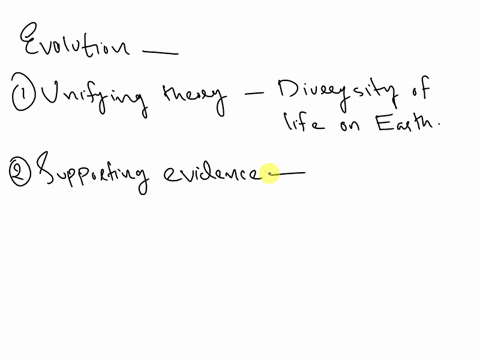 Evolution —
① Unifying theory — Diversity of
life on Earth.
② Supporting evidence —